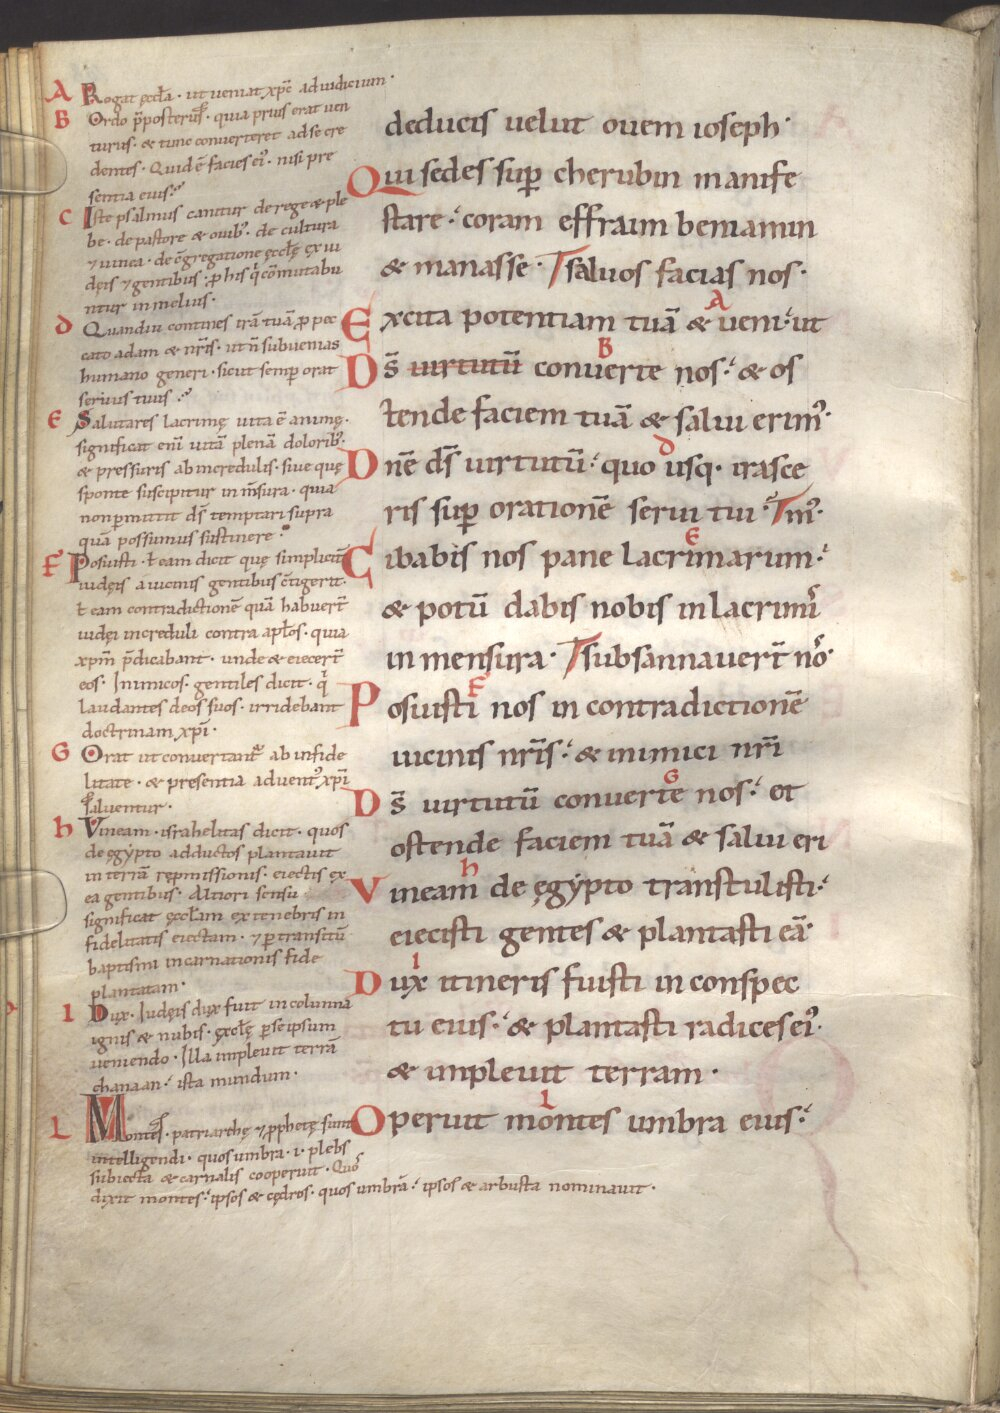 A Rogat ęccła · ut ueniat xp̄c ad iudicium ·
B Ordo p̄posterus · quia prius erat uen
turus · & tunc conuerteret ad se cre
dentes · Quid ē facies ei' · nisi pre
sentia eius ·
C Iste psalmus canitur de rege & ple
be · de pastore & ouib' · de cultura
⁊ uinea · de c̄gregatione ęccłę ex iu
dęis ⁊ gentibus · p his q̄ cōmutabu
ntur in melius ·
d Quandiu contines irā tuā p pec
cato adam & nr̄is · ut ñ subuenias
humano generi · sicut semp orat
seruus tuus ·
E Salutares lacrimę uita ē animę ·
significat enī uitā plenā dolorib' ·
& pressuris ab incredulis · siue quę
sponte suscipitur in m̄sura · quia
non pmittit ds̄ temptari supra
quā possumus sustinere ·
F Posuisti · ł eam dicit quę simplicib'
iudęis a uicinis gentibus c̄tigerit ·
ł eam contradictionē quā habuerł
iudęi increduli contra apłos · quia
xpm̄ p̄dicabant · unde & eiecerł
eos · Inimicos · gentiles dicit · q'
laudantes deos suos · irridebant
doctrinam xpī ·
G Orat ut conuertant' ab infide
litate · & presentia aduent' xpī
saluentur ·
h Vineam · israhelitas dicit · quos
de egypto adductos plantauit
in terrā repmissionis · eiectis ex
ea gentibus · Altiori sensu
significat ęccłam ex tenebris in
fidelitatis eiectam · ⁊ p transitū
baptismi incarnationis fide
plantatam ·
I Dux · Iudęis dux fuit in columna
ignis & nubis · ęccłę p se ipsum
ueniendo · Illa impleuit terrā
chanaan · ista mundum ·
L Montes · patriarchę ⁊ p̄phetę sunt
intelligendi · quos umbra · i · plebs
subiecta & carnalis cooperuit · Quos
dixit montes · ipsos & cędros · quos umbrā · ipsos & arbusta nominauit ·
deducis uelut ouem ioseph ·
Qui sedes sup cherubin manife
stare · coram effraim beniamin
& manasse · Tsaluos facias nos ·
Excita potentiam tuā & ueni · ut
Ds̄ uirtutū conuerte nos · & os
tende faciem tuā & salui erim' ·
Dn̄e ds̄ uirtutū · quo usq · irasce
ris sup orationē serui tui · Tm̄' ·
Cibabis nos pane lacrimarum ·
& potū dabis nobis in lacrimi'
in mensura · Tsubsannauerł no' ·
Posuisti nos in contradictionē
uicinis nr̄is · & inimici nr̄i
Ds̄ uirtutū conuerte nos · et
ostende faciem tuā & salui eri
Vineam de ęgypto transtulisti ·
eiecisti gentes & plantasti eā ·
Dux itineris fuisti in conspec
tu eius · & plantasti radices ei' ·
& impleuit terram ·
Operuit montes umbra eius ·